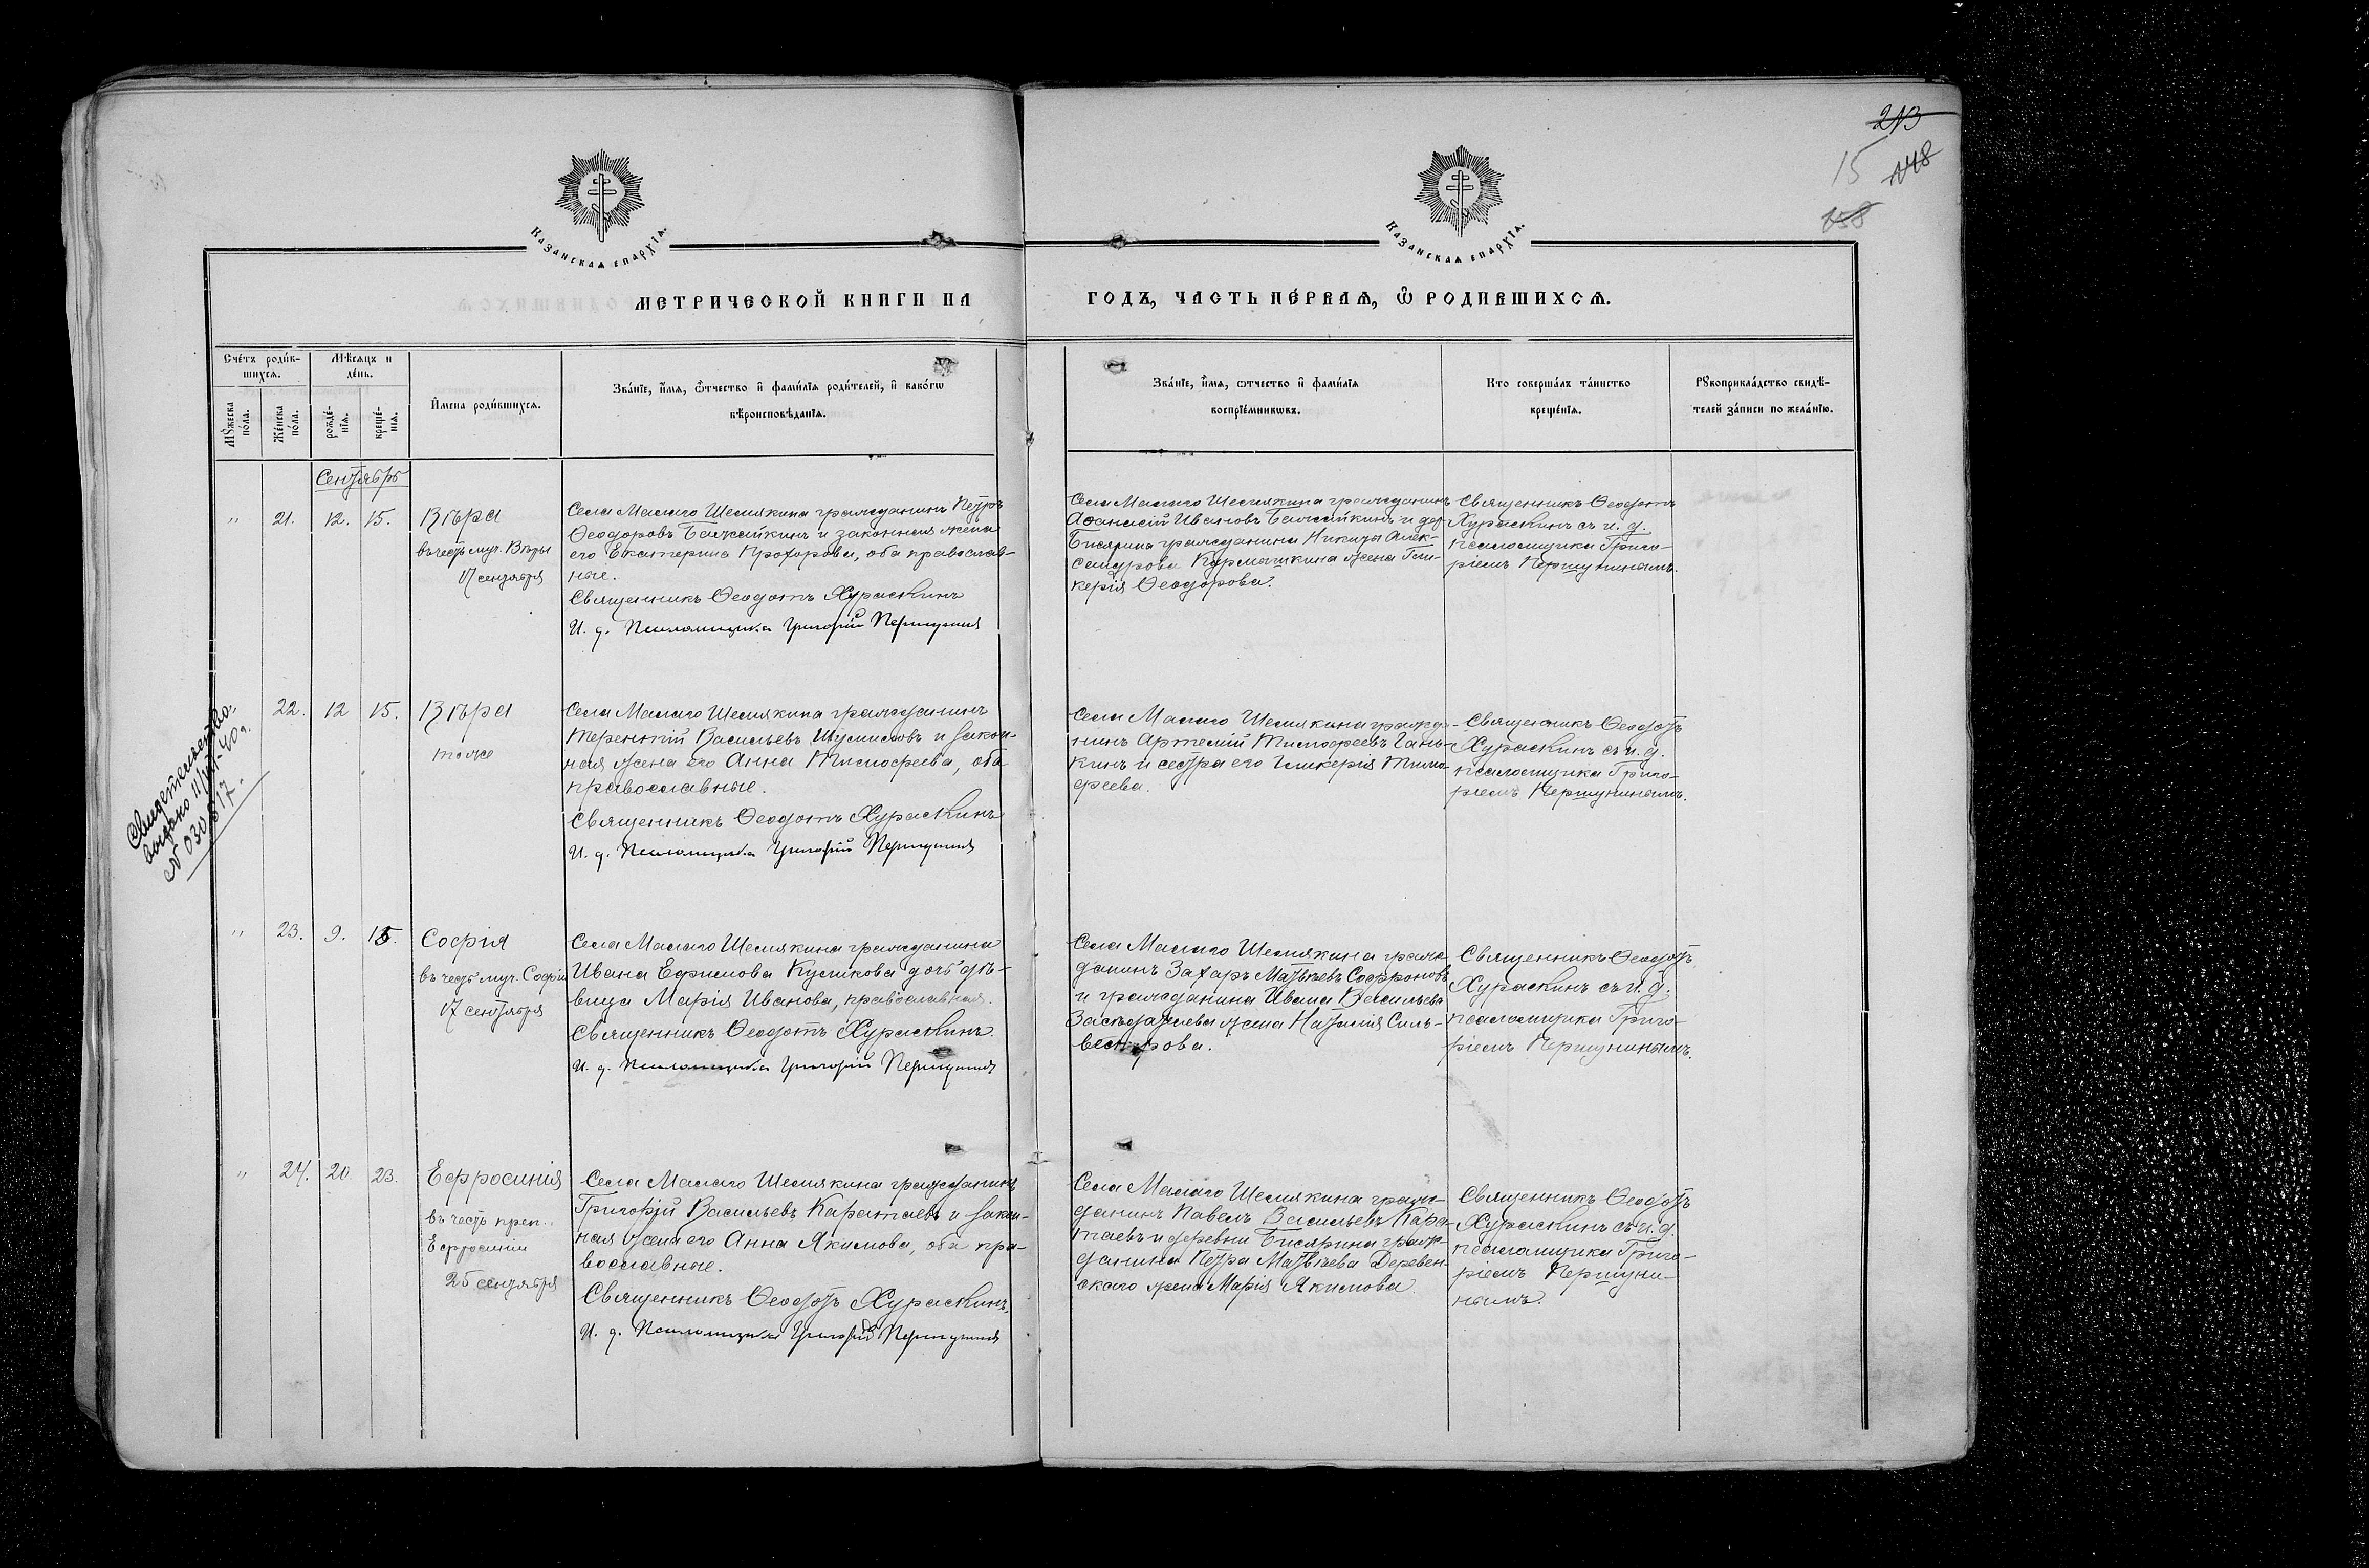 213
15 148
158
КАЗАНСКАѦ ЕПАРХІѦ.
КАЗАНСКАѦ ЕПАРХІѦ.
МЕТРИЧЕСКОЙ КНИГИ НА
ГОДЪ, ЧАСТЬ ПЕ́РВАѦ, Ѽ РОДИВШИХСѦ.
Сче́тъ роди́в-
шихсѧ.
Мѣ́сѧцъ и
де́нь.
Мꙋ́жеска
по́ла.
Же́нска
по́ла.
рожде́-
нїѧ.
креще́-
нїѧ.
И҆мена роди́вшихсѧ.
Зва́нїе, и҆́мѧ, ѻ҆́тчество и҆ фами́лїѧ роди́телей, и҆ како́гѡ
вѣроисповѣ́данїѧ.
Зва́нїе, и҆́мѧ, ѻтчество и҆ фами́лїѧ
воспрїе́мникѡвъ.
Кто соверша́лъ та́инство
креще́нїѧ.
Рꙋкоприкла́дство свидѣ́-
телей за́писи по жела́нїю.
Сентябрь
" 21. 12. 15. Вѣра
въ честь муч. Вѣры
17 сентября
Села Малаго Шемякина гражданинъ Петръ
Ѳеодоровъ Бажайкинъ и законная жена
его Екатерина Прохорова, оба православ-
ные.
Священникъ Ѳеодотъ Хураськинъ
И. д. Псаломщика Григорій Першунинъ
Села Малаго Шемякина гражданинъ
Аѳанасій Ивановъ Бажайкинъ и дер.
Бисярина гражданина Никиты Алек-
сандрова Курмашкина жена Гли-
керія Ѳеодорова.
Священникъ Ѳеодотъ
Хураськинъ съ и. д.
псаломщика Григо-
ріемъ Першунинымъ.
22. 12 15. Вѣра
тоже
Села Малаго Шемякина гражданинъ
Терентій Васильевъ и закон-
ная жена его Анна Тимоѳеева, оба
православные.
Священникъ Ѳеодотъ Хураськинъ
И. д. Псаломщика Григорій Першунинъ
Села Малаго Шемякина гражда-
нинъ Артемій Тимоѳеевъ Гань-
кинъ и сестра его Гликерія Тимо-
ѳеева.
Священникъ Ѳеодотъ
Хураськинъ съ и. д.
псаломщика Григо-
ріемъ Першунинымъ.
Свидетельство
выдано 11/VII-40 г.
№ 030817.
" 23. 9. 15. Софія
въ честь муч. Софіи
17 сентября
Села Малаго Шемякина гражданина
Ивана Ефимова Куликова дочь дѣ-
вица Марія Иванова, православная.
Священникъ Ѳеодотъ Хураськинъ
И. д. Псаломщика Григорій Першунинъ
Села Малаго Шемякина граж-
данинъ Захаръ Матвѣевъ Софроновъ
и гражданина Ивана Васильева
Засѣдателева жена Наталія Силь-
вестрова.
Священникъ Ѳеодотъ
Хураськинъ съ и. д.
псаломщика Григо-
ріемъ Першунинымъ.
" 24. 20. 23. Евфросинія
въ честь преп.
Евфросиніи
25 сентября
Села Малаго Шемякина гражданинъ
Григорій Васильевъ Каратаевъ и закон-
ная жена его Анна Якимова, оба пра-
вославные.
Священникъ Ѳеодотъ Хураськинъ,
И. д. Псаломщика Григорій Першунинъ
Села Малаго Шемякина граж-
данинъ Павелъ Васильевъ Кара-
таевъ и деревни Бисярина граж-
данина Петра Матвѣева Деревен-
скаго жена Марія Якимова
Священникъ Ѳеодотъ
Хураськинъ съ и. д.
псаломщика Григо-
ріемъ Першуни-
нымъ.